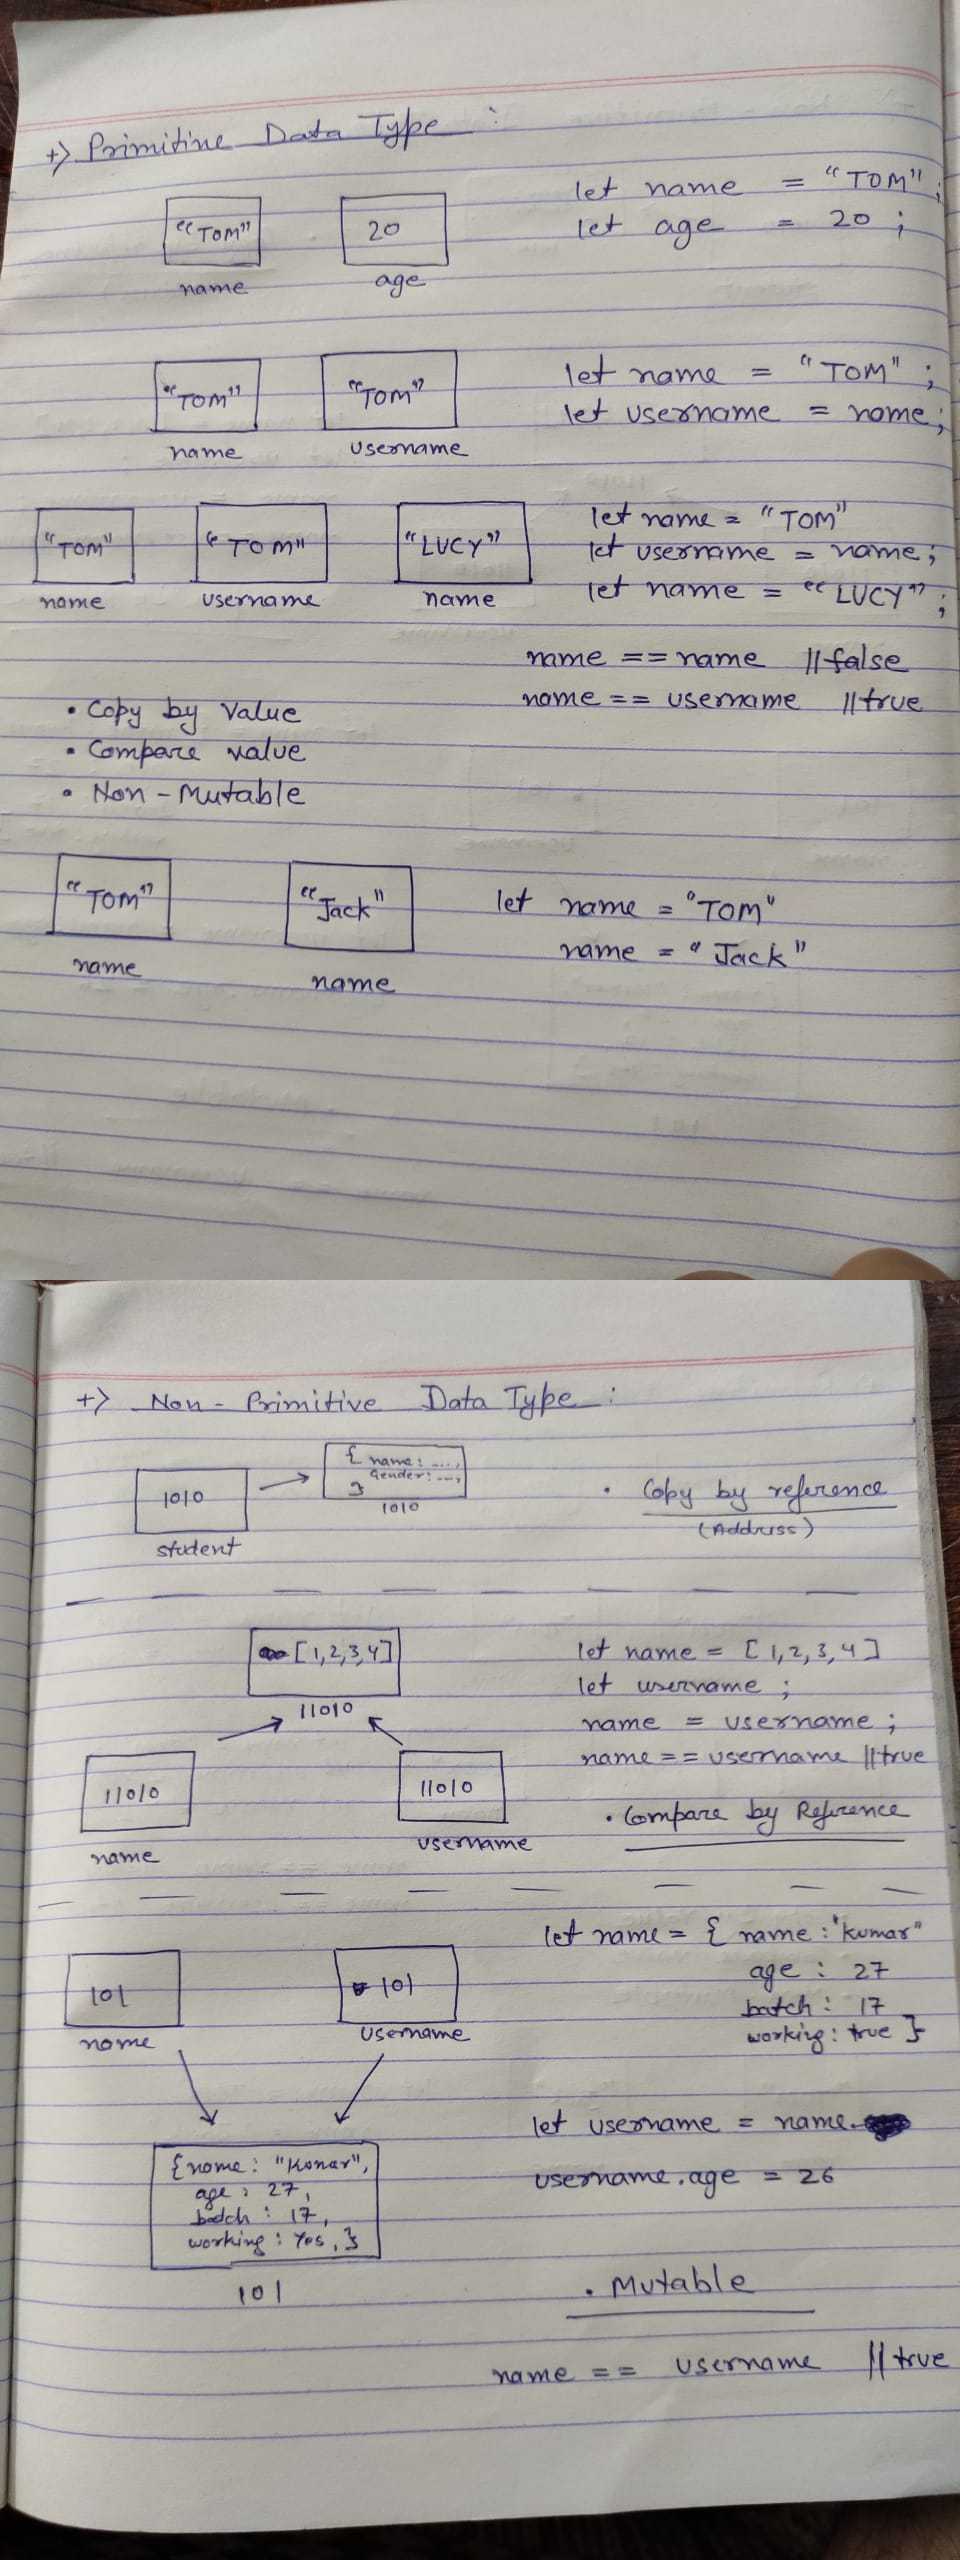 +> Primitive Data Type :
"TOM" 20
name age
let name = "TOM" ;
let age = 20 ;
"TOM" "TOM"
name username
let name = "TOM" ;
let username = name;
"TOM" "TOM" "LUCY"
name username name
let name = "TOM"
let username = name;
let name = "LUCY" ;
name == name //false
name == username //true
• Copy by Value
• Compare value
• Non-Mutable
"TOM" "Jack"
name name
let name = "TOM"
name = "Jack"
+> Non-Primitive Data Type :
1010
student
{ name: ...,
Gender: ...,
}
1010
• Copy by reference
(Address)
[1,2,3,4]
11010
11010 11010
name username
let name = [1,2,3,4]
let username ;
name = username ;
name == username //true
• Compare by Reference
101 101
name username
let name = { name: "kumar"
age : 27
batch : 17
working: true }
let username = name
username.age = 26
{name: "Kumar",
age : 27,
batch : 17,
working : Yes, }
101
• Mutable
name == username // true